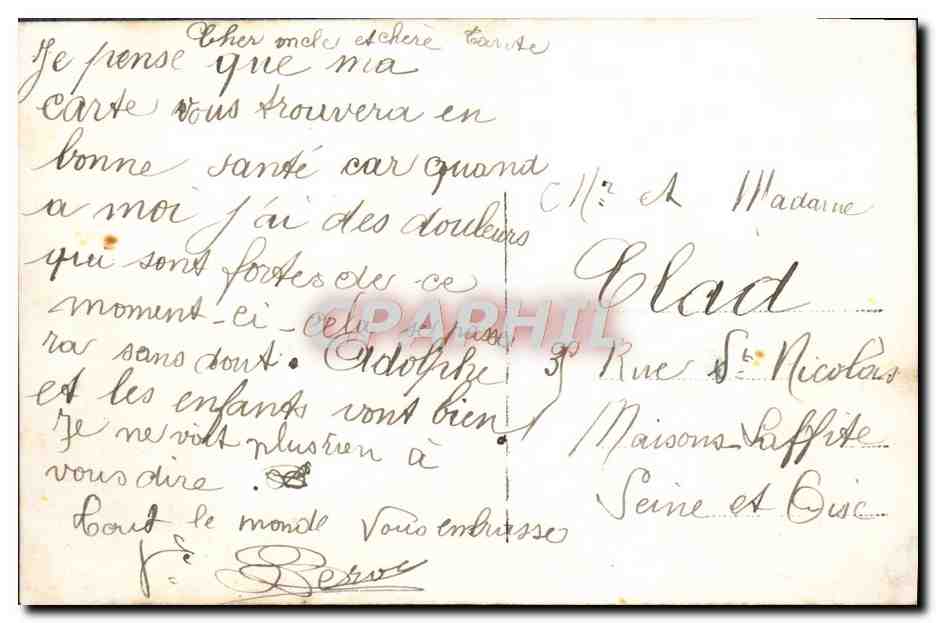 Cher oncle et chère tante
Je pense que ma
carte vous trouvera en
bonne santé car quand
a moi j'ai des douleurs
qui sont fortes de ce
moment-ci - cela se passe
ra sans dout. Adolphe
et les enfants vont bien.
Je ne voit plus rien à
vous dire.
Tout le monde vous embrasse
Mr et Madame
Clad
Rue St. Nicolas
Maisons Laffite
Seine et Oise
CPAPHIL